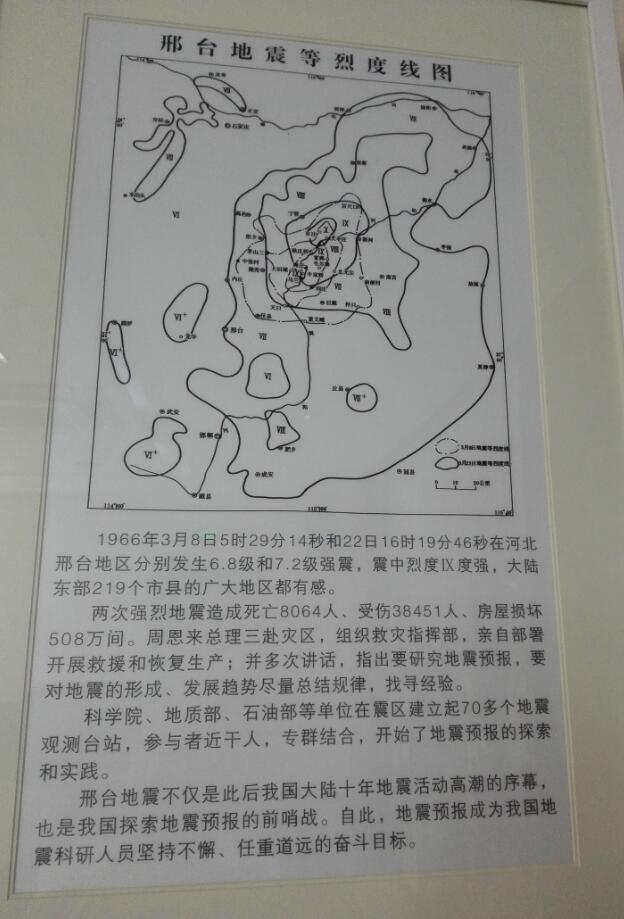 邢台地震等烈度线图
石家庄
Ⅶ
Ⅵ
Ⅷ
Ⅸ
Ⅹ
宁晋
衡水
枣强
新河
南宫
内丘
任县
邢台
Ⅵ⁺
Ⅶ
Ⅵ
Ⅶ⁺
丘县
武安
邯郸
Ⅷ
肥乡
Ⅵ⁺
成安
磁县
冠县
3月8日地震等烈度线
3月22日地震等烈度线
0 10 20公里
1966年3月8日5时29分14秒和22日16时19分46秒在河北
邢台地区分别发生6.8级和7.2级强震，震中烈度Ⅸ度强，大陆
东部219个市县的广大地区都有感。
两次强烈地震造成死亡8064人、受伤38451人、房屋损坏
508万间。周恩来总理三赴灾区，组织救灾指挥部，亲自部署
开展救援和恢复生产；并多次讲话，指出要研究地震预报，要
对地震的形成、发展趋势尽量总结规律，找寻经验。
科学院、地质部、石油部等单位在震区建立起70多个地震
观测台站，参与者近千人，专群结合，开始了地震预报的探索
和实践。
邢台地震不仅是此后我国大陆十年地震活动高潮的序幕，
也是我国探索地震预报的前哨战。自此，地震预报成为我国地
震科研人员坚持不懈、任重道远的奋斗目标。